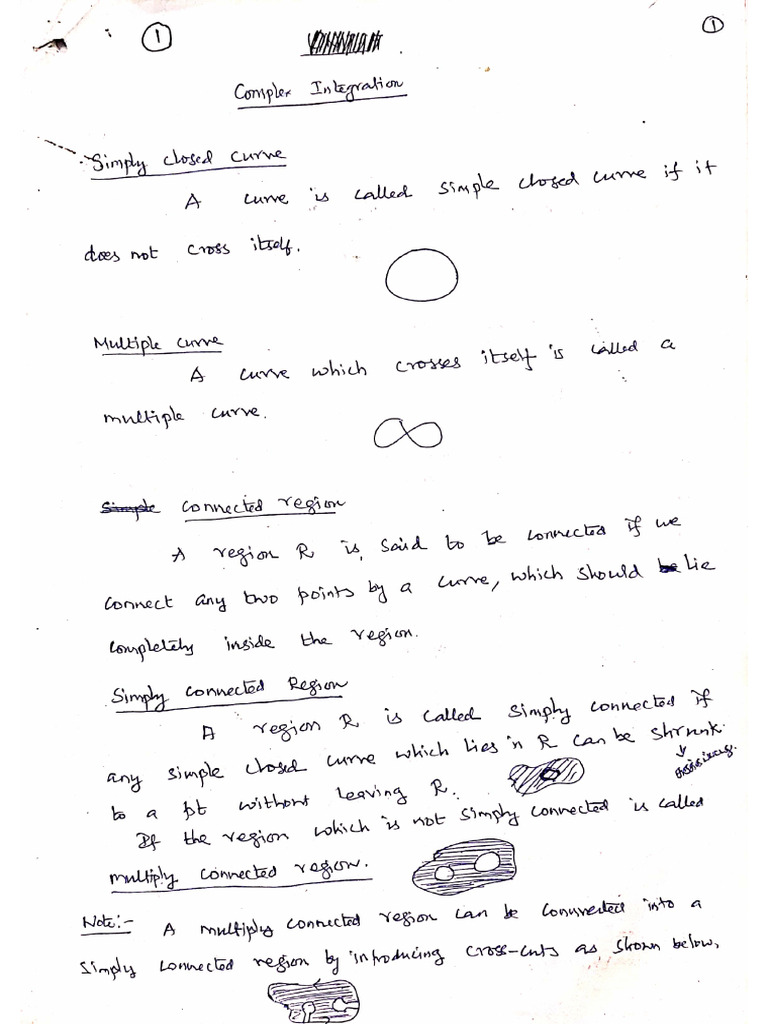 1
1
Complex Integration
Simply closed curve
A curve is called simple closed curve if it
does not cross itself.
Multiple curve
A curve which crosses itself is called a
multiple curve.
Simple connected region
A region R is said to be connected if we
connect any two points by a curve, which should be lie
completely inside the region.
Simply connected Region
A region R is called simply connected if
any simple closed curve which lies in R can be shrunk
to a pt without leaving R.
If the region which is not simply connected is called
multiply connected region.
Note:- A multiply connected region can be connverted into a
simply connected region by introducing cross-cuts as shown below,